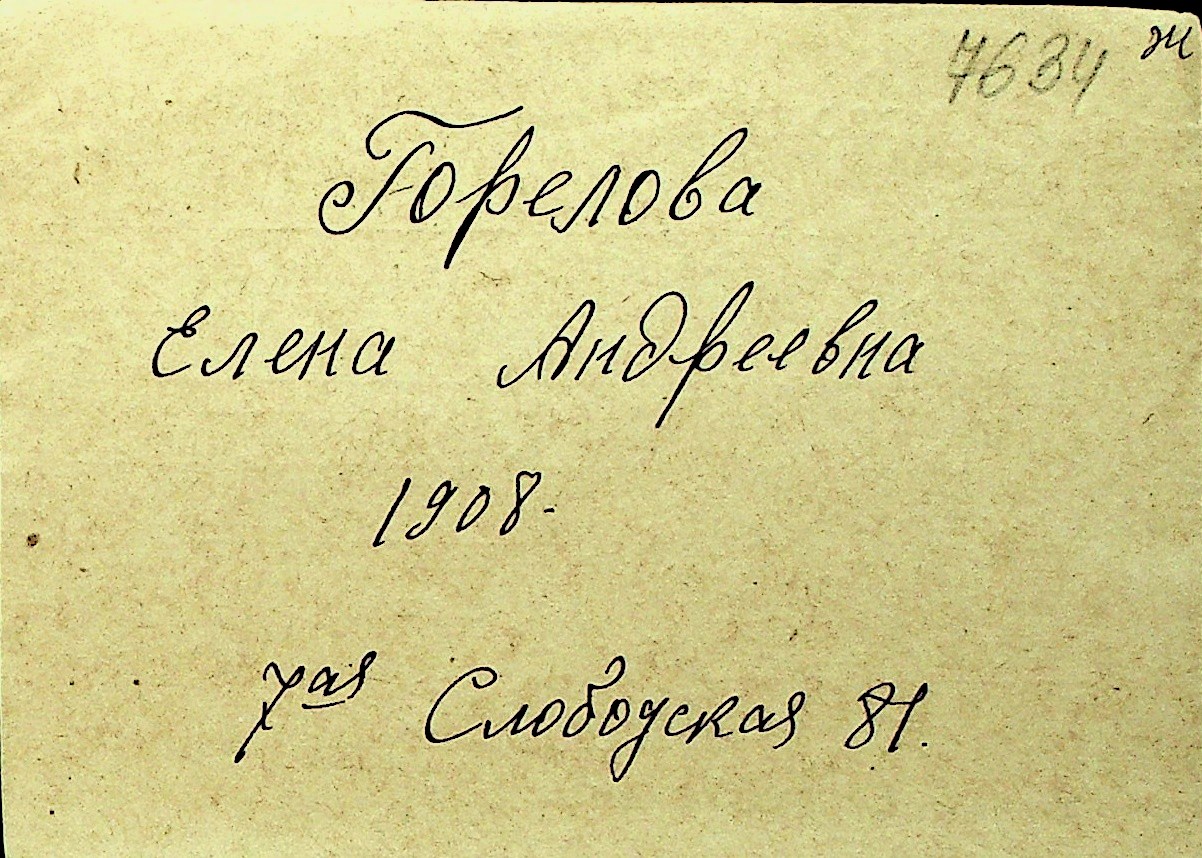 7634 Ж
Горелова
Елена Андреевна
1908.
7ая Слободская 81.